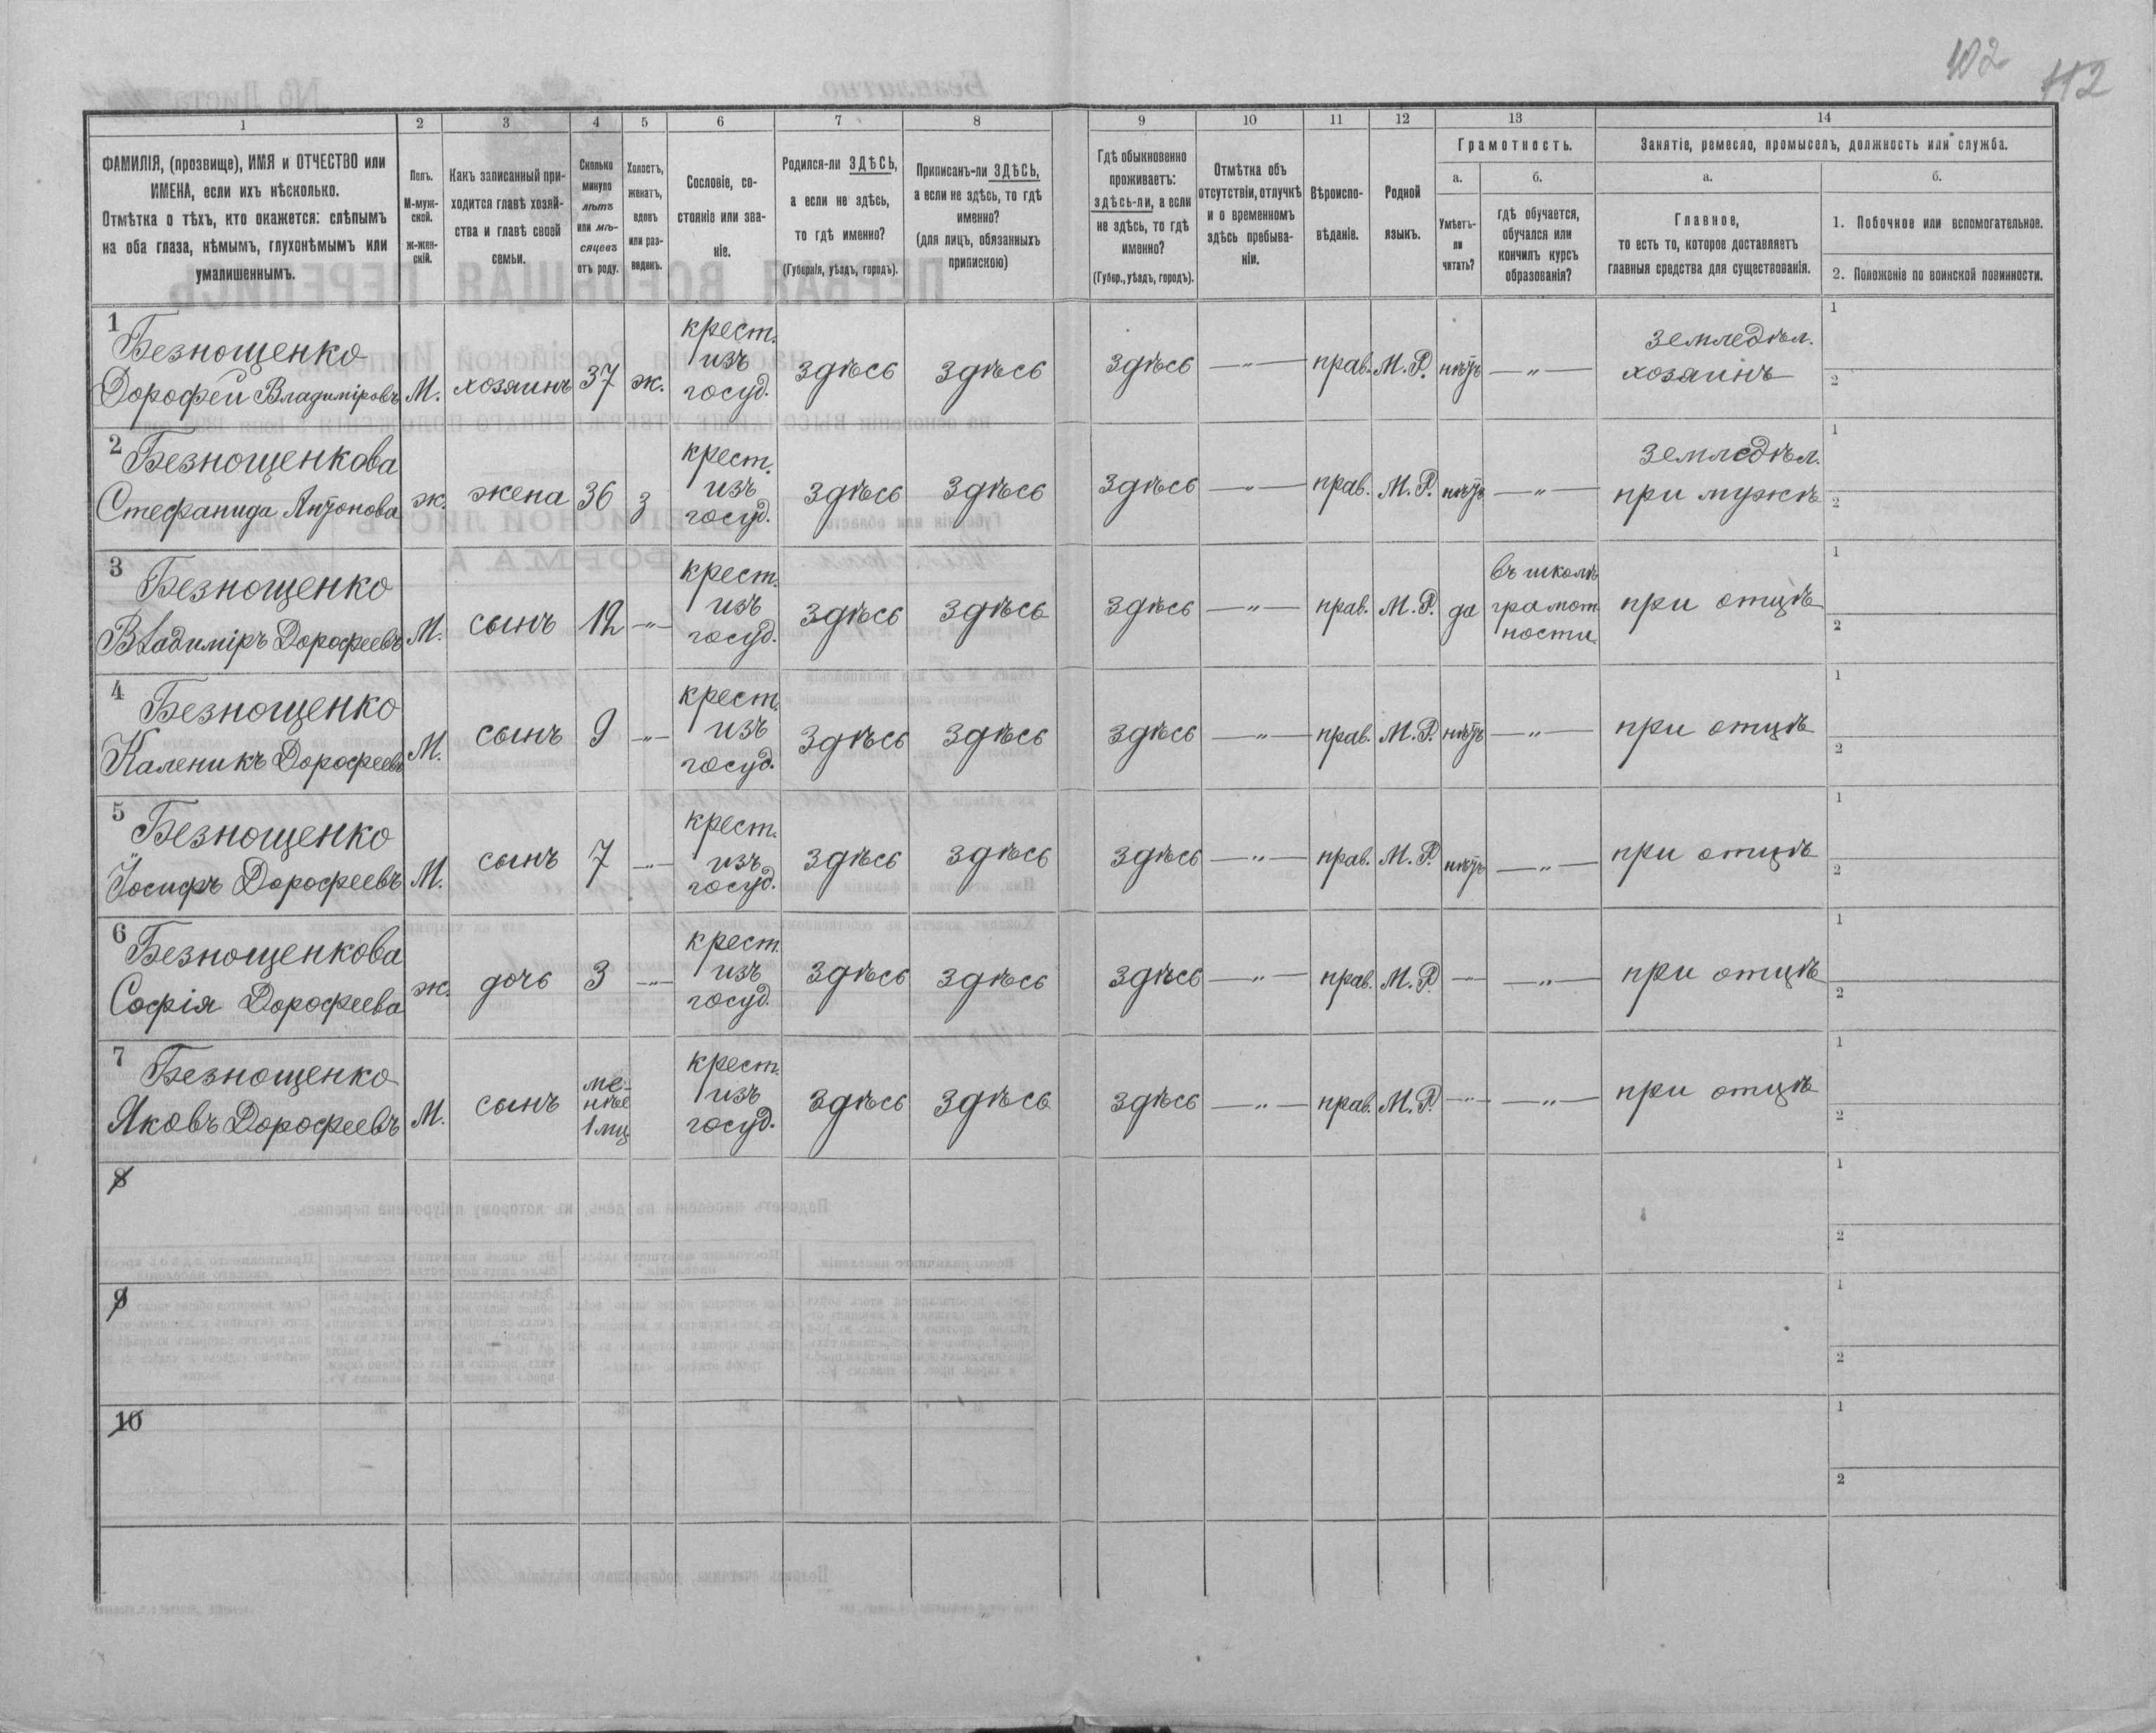 102 112
1 2 3 4 5 6 7 8 9 10 11 12 13 14
ФАМИЛІЯ, (прозвище), ИМЯ и ОТЧЕСТВО или
ИМЕНА, если ихъ нѣсколько.
Отмѣтка о тѣхъ, кто окажется: слѣпымъ
на оба глаза, нѣмымъ, глухонѣмымъ или
умалишеннымъ.
Полъ.
М-муж-
ской.
Ж-жен-
скій.
Какъ записанный при-
ходится главѣ хозяй-
ства и главѣ своей
семьи.
Сколько
минуло
лѣтъ
или мѣ-
сяцевъ
отъ роду.
Холостъ,
женатъ,
вдовъ
или раз-
веденъ.
Сословіе, со-
стояніе или зва-
ніе.
Родился-ли ЗДѢСЬ,
а если не здѣсь,
то гдѣ именно?
(Губернія, уѣздъ, городъ).
Приписанъ-ли ЗДѢСЬ,
а если не здѣсь, то гдѣ
именно?
(для лицъ, обязанныхъ
припискою)
Гдѣ обыкновенно
проживаетъ:
здѣсь-ли, а если
не здѣсь, то гдѣ
именно?
(Губер., уѣздъ, городъ).
Отмѣтка объ
отсутствіи, отлучкѣ
и о временномъ
здѣсь пребыва-
ніи.
Вѣроиспо-
вѣданіе.
Родной
языкъ.
Грамотность.
а.
Умѣетъ-
ли
читать?
б.
гдѣ обучается,
обучался или
кончилъ курсъ
образованія?
Занятіе, ремесло, промыселъ, должность или служба.
а.
Главное,
то есть то, которое доставляетъ
главныя средства для существованія.
б.
1. Побочное или вспомогательное.
2. Положеніе по воинской повинности.
1
Безнощенко
Дорофей Владиміровъ
М.
хозяинъ
37
ж.
крест.
изъ
госуд.
здѣсь
здѣсь
здѣсь
— „ —
прав.
М. Р.
нѣтъ
— „ —
земледѣл.
хозяинъ
1
2
2
Безнощенкова
Стефанида Антонова
ж.
жена
36
з
крест.
изъ
госуд.
здѣсь
здѣсь
здѣсь
— „ —
прав.
М. Р.
нѣтъ
— „ —
земледѣл.
при мужѣ
1
2
3
Безнощенко
Владиміръ Дорофеевъ
М.
сынъ
12
— „ —
крест.
изъ
госуд.
здѣсь
здѣсь
здѣсь
— „ —
прав.
М. Р.
да
въ школѣ
грамот
ности
при отцѣ
1
2
4
Безнощенко
Каленикъ Дорофеевъ
М.
сынъ
9
— „ —
крест.
изъ
госуд.
здѣсь
здѣсь
здѣсь
— „ —
прав.
М. Р.
нѣтъ
— „ —
при отцѣ
1
2
5
Безнощенко
Іосифъ Дорофеевъ
М.
сынъ
7
— „ —
крест.
изъ
госуд.
здѣсь
здѣсь
здѣсь
— „ —
прав.
М. Р.
нѣтъ
— „ —
при отцѣ
1
2
6
Безнощенкова
Софія Дорофеева
ж.
дочь
3
— „ —
крест.
изъ
госуд.
здѣсь
здѣсь
здѣсь
— „ —
прав.
М. Р.
— „ —
— „ —
при отцѣ
1
2
7
Безнощенко
Яковъ Дорофеевъ
М.
сынъ
ме-
нѣе
1 мц
крест.
изъ
госуд.
здѣсь
здѣсь
здѣсь
— „ —
прав.
М. Р.
— „ —
— „ —
при отцѣ
1
2
8
1
2
9
1
2
10
1
2